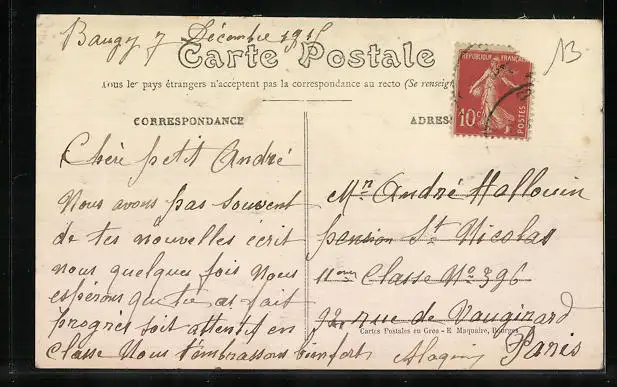 Baugy 7 Décembre 191
Carte Postale
13
Tous les pays étrangers n'acceptent pas la correspondance au recto (Se renseig
RÉPUBLIQUE FRANÇAISE
10c
POSTES
CORRESPONDANCE
ADRES
Chère petit André
Nous avons pas souvent
de tes nouvelles écrit
nous quelques fois Nous
espérons que tu as fait
progrès soit attentif en
classe Nous t'embrassons bien fort
Mr. André Hallouin
pension St. Nicolas
11eme Classe No. 396
92, rue de Vaugirard
Cartes Postales en Gros - E. Maquaire, Bourges
Paris